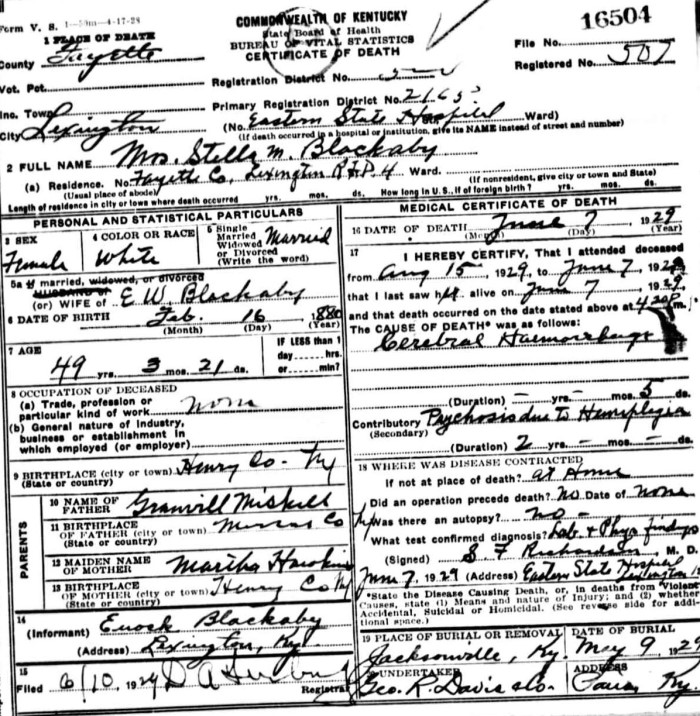 Form V. S. 1-50m-4-17-28
COMMONWEALTH OF KENTUCKY
State Board of Health
BUREAU OF VITAL STATISTICS
CERTIFICATE OF DEATH
16504
File No.
Registered No. 507
1 PLACE OF DEATH
County Fayette
Vot. Pct.
Registration District No.
Inc. Town
Primary Registration District No. 2165
City Lexington
(No. Eastern State Hospital Ward)
(If death occurred in a hospital or institution, give its NAME instead of street and number)
2 FULL NAME Mrs. Stella M. Blackaby
(a) Residence. No. Fayette Co, Lexington R.F.D. 4 Ward.
(Usual place of abode) (If nonresident, give city or town and State)
Length of residence in city or town where death occurred yrs. mos. ds. How long in U. S., if of foreign birth? yrs. mos. ds.
PERSONAL AND STATISTICAL PARTICULARS
3 SEX
Female
4 COLOR OR RACE
White
5 Single
Married
Widowed
or Divorced
(Write the word)
Married
5a If married, widowed, or divorced
HUSBAND of
(or) WIFE of E W. Blackaby
6 DATE OF BIRTH Feb. 16, 1880
(Month) (Day) (Year)
7 AGE
49 yrs. 3 mos. 21 ds.
IF LESS than 1
day hrs.
or min?
8 OCCUPATION OF DECEASED
(a) Trade, profession or
particular kind of work None
(b) General nature of industry,
business or establishment in
which employed (or employer)
9 BIRTHPLACE (city or town) Henry Co - Ky
(State or country)
PARENTS
10 NAME OF
FATHER Granvill
11 BIRTHPLACE
OF FATHER (city or town) Co
(State or country)
12 MAIDEN NAME
OF MOTHER Martha
13 BIRTHPLACE
OF MOTHER (city or town) Henry Co Ky
(State or country)
14
(Informant) Enoch Blackaby
(Address) Lexington, Ky.
15
Filed 6/10, 1929
Registrar
MEDICAL CERTIFICATE OF DEATH
16 DATE OF DEATH June 7, 1929
(Month) (Day) (Year)
17
I HEREBY CERTIFY, That I attended deceased
from Aug 15, 1929, to June 7, 1929
that I last saw her alive on June 7, 1929,
and that death occurred on the date stated above at m.
The CAUSE OF DEATH* was as follows:
Cerebral Haemorrhage
(Duration) - yrs. - mos. 5 ds.
Contributory Psychosis due to Hemiplegia
(Secondary)
(Duration) 2 yrs. - mos. - ds.
18 WHERE WAS DISEASE CONTRACTED
If not at place of death? at Home
Did an operation precede death? No. Date of None
Was there an autopsy? no -
What test confirmed diagnosis? Lab. & Phys findings
(Signed) S. F. Richardson, M. D.
June 7, 1929 (Address) Eastern State Hospital
Lexington
*State the Disease Causing Death, or, in deaths from Violent
Causes, state (1) Means and nature of Injury; and (2) whether
Accidental, Suicidal or Homicidal. (See reverse side for addi-
tional space.)
19 PLACE OF BURIAL OR REMOVAL
Jacksonville, Ky.
DATE OF BURIAL
May 9, 1929
20 UNDERTAKER
Geo. R. Davis & Co.
ADDRESS
Paris, Ky.